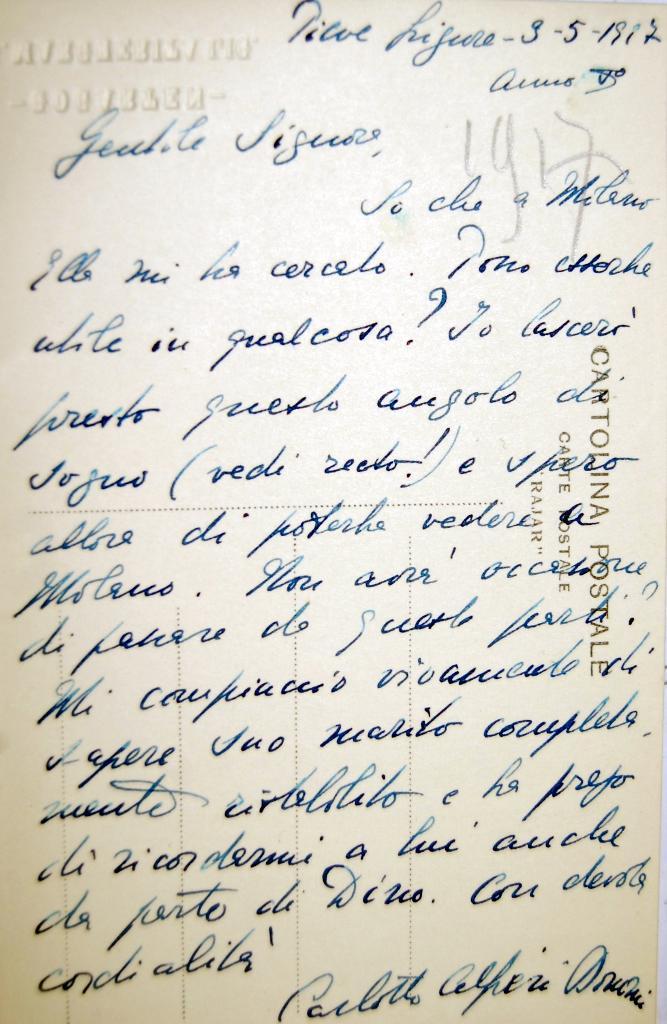 Pieve Ligure - 3-5-1927
Anno Vº
1927
Gentile Signora,
So che a Milano
Ella mi ha cercato. Posso esserle
utile in qualcosa? Io lascerò
presto questo angolo di
sogno (vedi recto!) e spero
allora di poterla vedere a
Milano. Non avrà occasione
di passare da queste parti?
Mi compiaccio vivamente di
sapere suo marito completa-
mente ristabilito e la prego
di ricordarmi a lui anche
da parte di Dino. Con devota
cordialità
Carlotta Alfieri Bonomi
CARTOLINA POSTALE
CARTE POSTALE
"RAJAR"